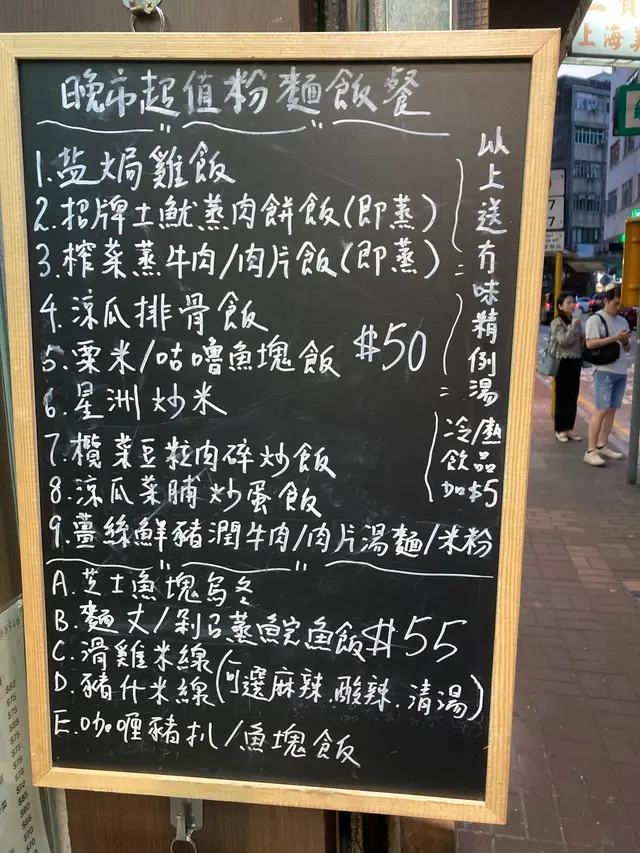 晚市超值粉麵飯餐
1.盐焗雞飯
2.招牌土魷蒸肉餅飯(即蒸)
3.榨菜蒸牛肉/肉片飯(即蒸)
4.涼瓜排骨飯
5.粟米/咕嚕魚塊飯 $50
6.星洲炒米
7.欖菜豆粒肉碎炒飯
8.涼瓜菜脯炒蛋飯
9.薑絲鮮豬潤牛肉/肉片湯麵/米粉
以上送冇味精例湯
冷/熱
飲品
加$5
A.芝士魚塊烏冬
B.麵丈/剁召蒸鯇魚飯$55
C.滑雞米線
D.豬什米線(可選麻辣.酸辣.清湯)
E.咖喱豬扒/魚塊飯
上海